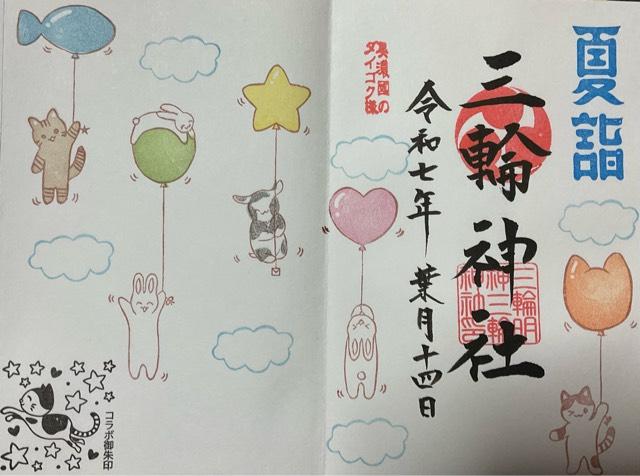 夏詣
三輪神社
令和七年 葉月十四日
美濃國の
ダイコク様
コラボ御朱印